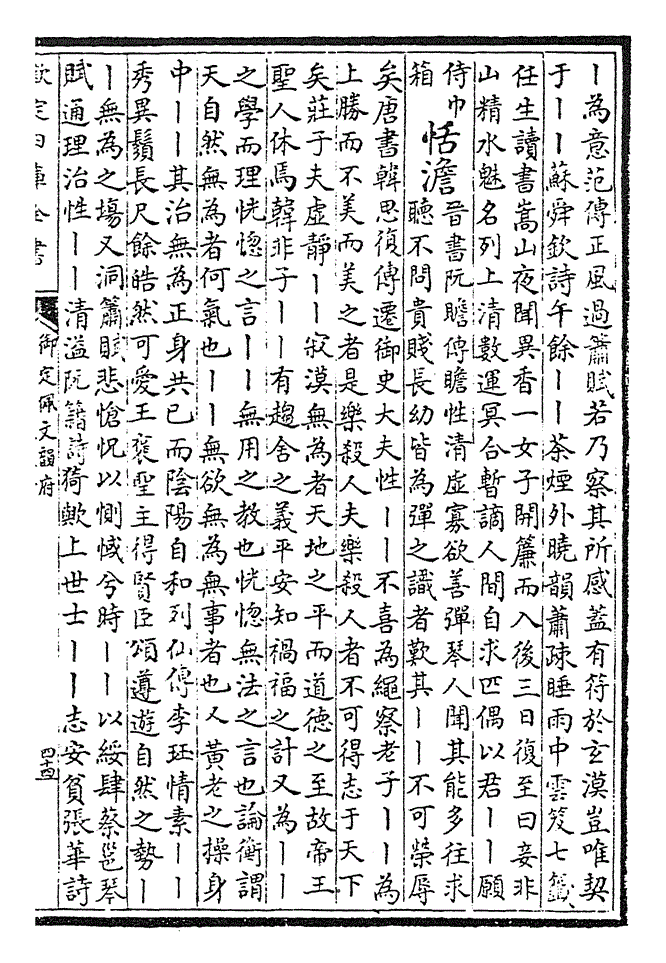 丨為意范傳正風過簫賦若乃察其所感蓋有符於玄漠豈唯契
于丨丨蘇舜欽詩午餘丨丨茶煙外曉韻蕭疎睡雨中雲笈七籖
任生讀書嵩山夜聞異香一女子開簾而入後三日復至曰妾非
山精水魅名列上清數運冥合暫謫人間自求匹偶以君丨丨願
侍巾箱
恬澹
晉書阮瞻傳瞻性清虛寡欲善彈琴人聞其能多往求
聽不問貴賤長幼皆為彈之識者歎其丨丨不可榮辱
矣唐書韓思復傳遷御史大夫性丨丨不喜為繩察老子丨丨為
上勝而不美而美之者是樂殺人夫樂殺人者不可得志于天下
矣莊子夫虛靜丨丨寂漠無為者天地之平而道德之至故帝王
聖人休焉韓非子丨丨有趨舍之義平安知禍福之計又為丨丨
之學而理恍惚之言丨丨無用之教也恍惚無法之言也論衡謂
天自然無為者何氣也丨丨無欲無為無事者也又黃老之操身
中丨丨其治無為正身共已而陰陽自和列仙傳李珏情素丨丨
秀異鬚長尺餘皓然可愛王褒聖主得賢臣頌遵遊自然之勢丨
丨無為之場又洞簫賦悲愴怳以惻惐兮時丨丨以綏肆蔡邕琴
賦通理治性丨丨清溢阮籍詩猗歟上世士丨丨志安貧張華詩
欽定四庫全書
御定佩文韻府
四十四